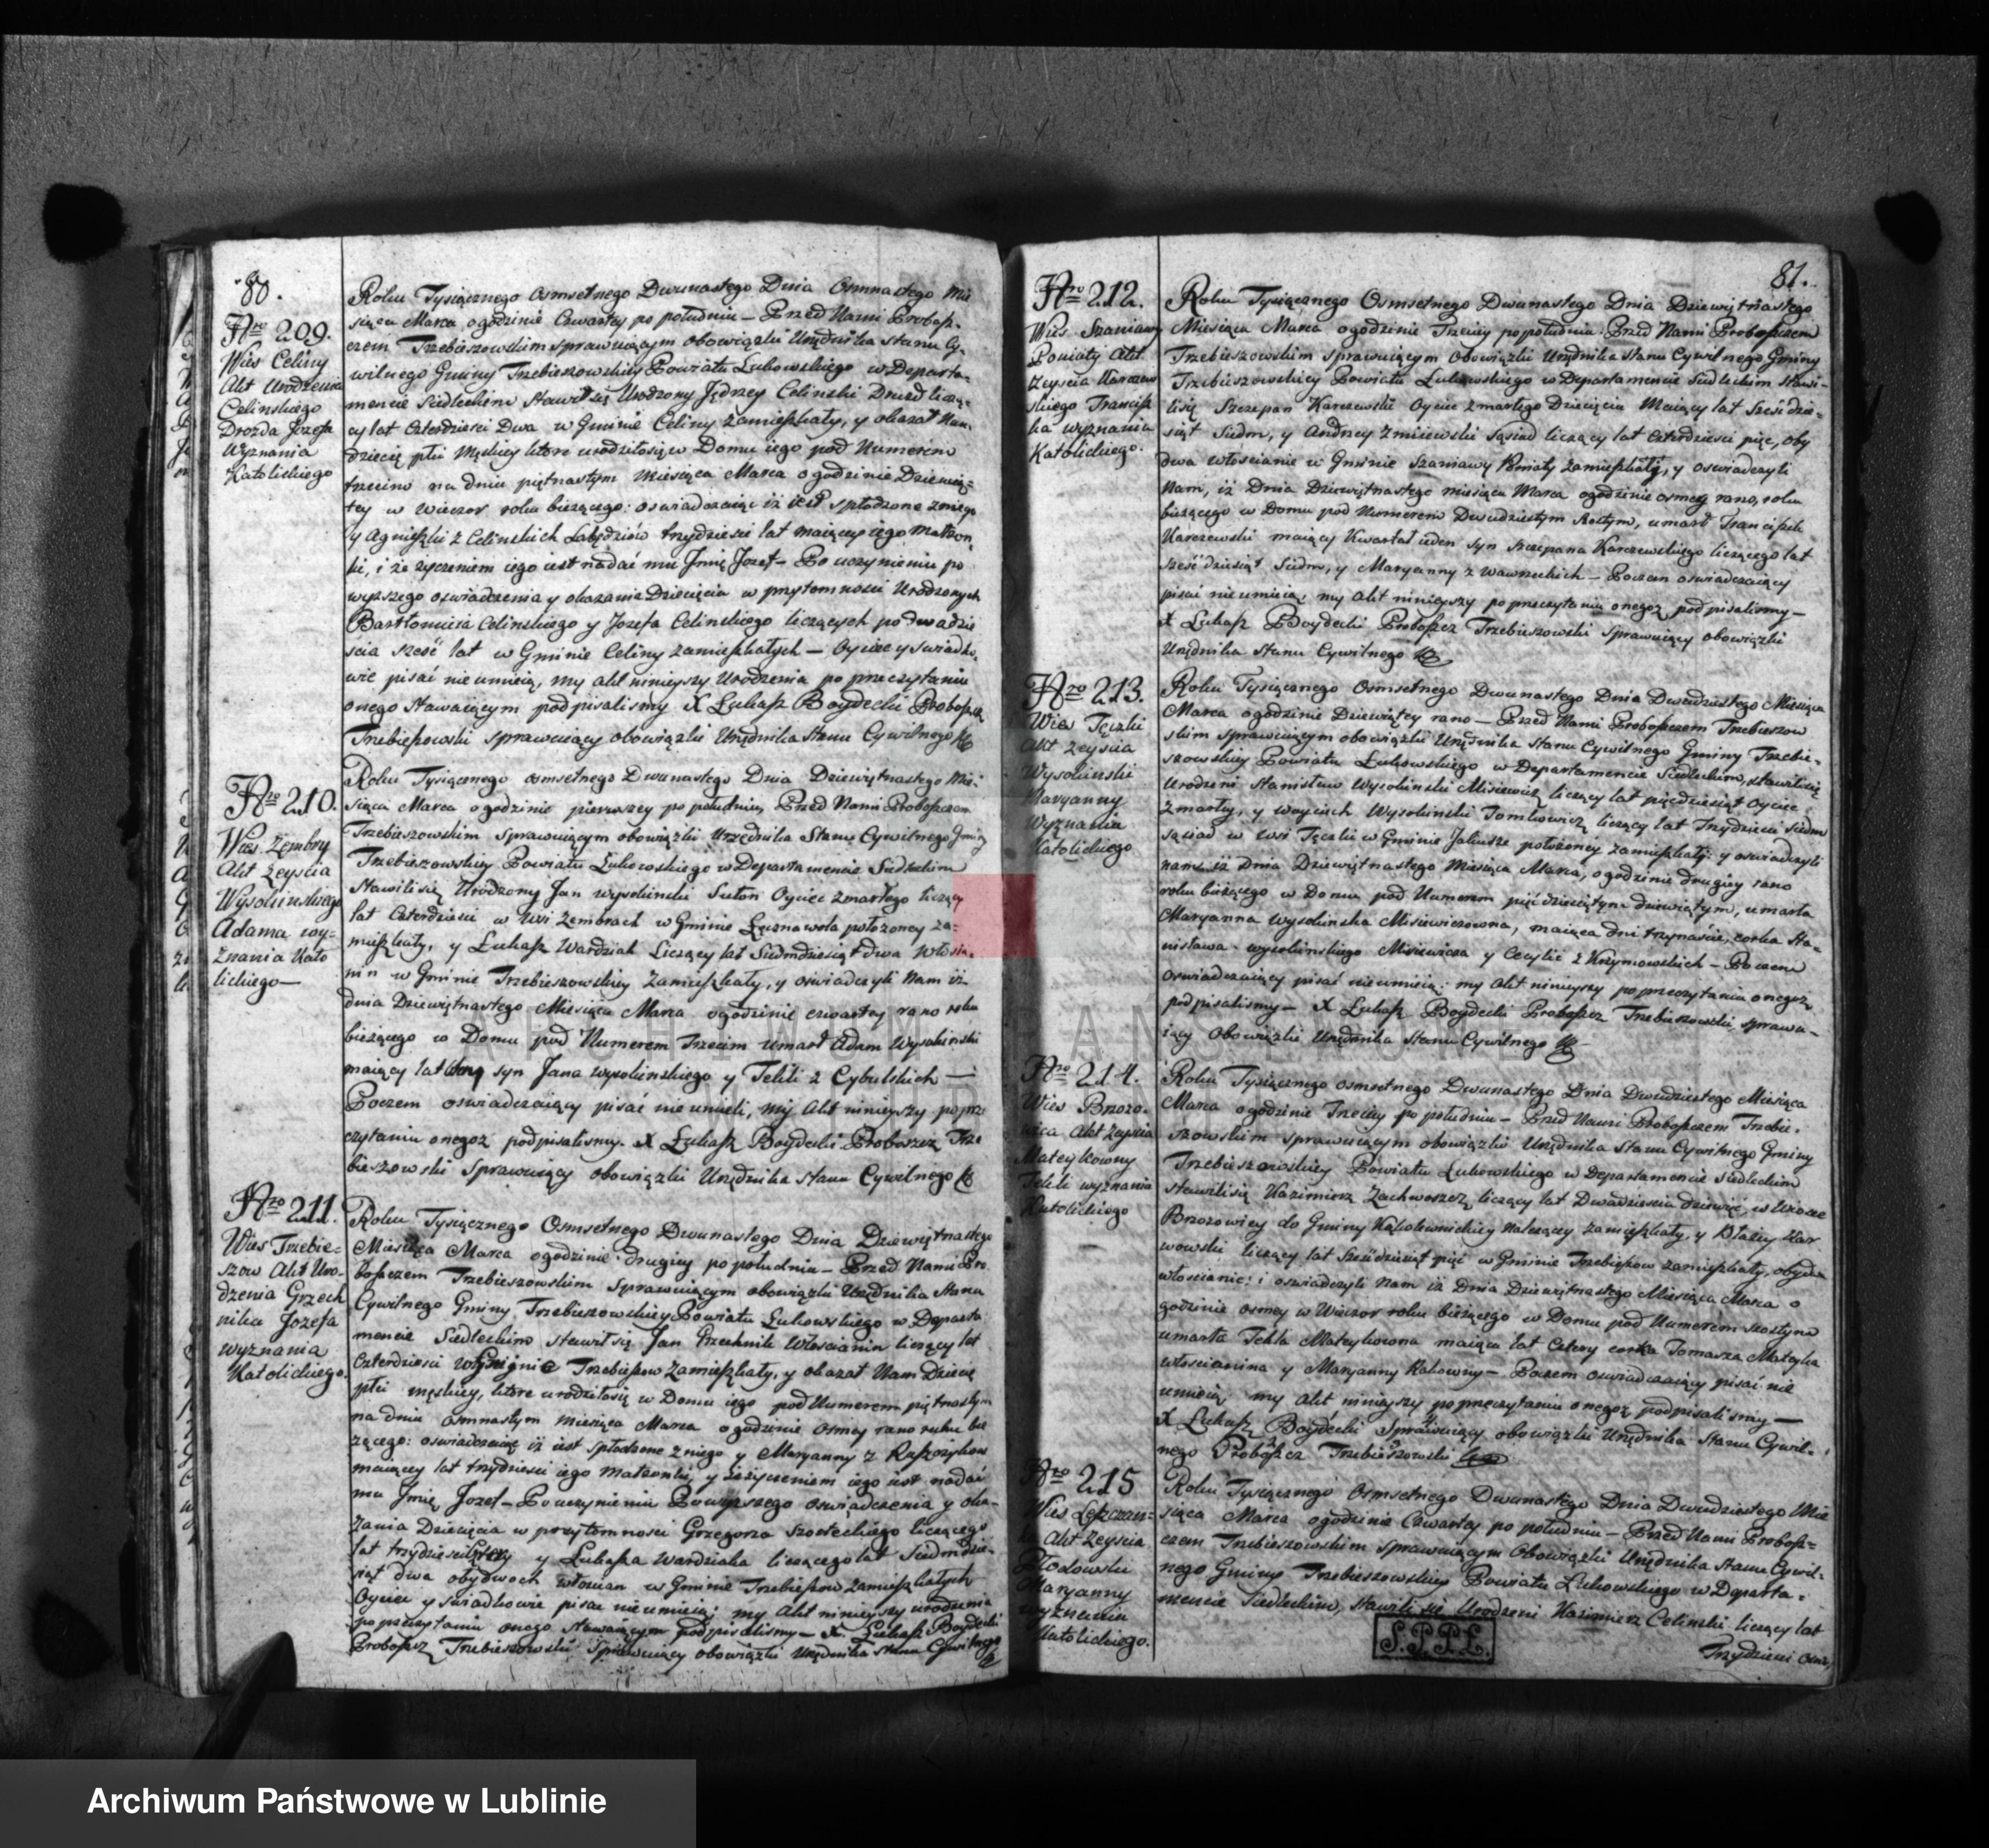 80.
Nro 209.
Wieś Celiny
Akt Urodzenia
Celinskiego
Drozda Jozefa
Wyznania
Katolickiego
Roku Tysiącznego Osmsetnego Dwunastego Dnia Osmnastego Mie
siąca Marca o godzinie Czwartey po południu – Przed Nami Probosz-
czem Trzebieszowskim sprawuiącym obowiązki Urzędnika Stanu Cy-
wilnego Gminy Trzebieszowskiey Powiatu Łukowskiego w Departa-
mencie Siedleckim Stawił się Urodzony Jędrzey Celinski Drozd liczą-
cy lat Czterdzieści Dwa w Gminie Celiny zamieszkały, y okazał Nam
dziecię płci Męskiey które urodziło się w Domu iego pod Numerem
trzecim na dniu piętnastym Miesiąca Marca o godzinie Dziewią-
tey w wieczor roku bieżącego: oswiadczaiąc iż iest spłodzone z niego
y Agnieszki z Celinskich Łabędziów trzydzieście lat maiącey iego Małżon
ki, i że życzeniem iego iest nadać mu Imię Jozef – Po uczynieniu po
wyższego oswiadczenia y okazania Dziecięcia w przytomności Urodzonych
Bartłomieia Celinskiego y Jozefa Celinskiego liczących po dwadzie
ścia sześć lat w Gminie Celiny zamieszkałych – Oyciec y swiadko-
wie pisać nie umieią, my akt ninieyszy Urodzenia po przeczytaniu
onego Stawaiącym podpisalismy X Łukasz Boydecki Proboszcz
Trzebieszowski sprawuiący obowiązki Urzędnika Stanu Cywilnego
Nro 210.
Wieś Zembry
Akt Zeyscia
Wysokinskiego
Adama wy-
znania Kato
lickiego—
Roku Tysiącznego osmsetnego Dwunastego Dnia Dziewiętnastego Mie-
siąca Marca o godzinie pierwszey po południu, Przed Nami Proboszczem
Trzebieszowskim Sprawuiącym obowiązki Urzędnika Stanu Cywilnego Gminy
Trzebieszowskiey Powiatu Łukowskiego w Departamencie Siedleckim
Stawili się Urodzony Jan Wysokinski Oyciec zmarłego liczący
lat Czterdzieści w wsi Zembrach w Gminie Łęcznawola położoney za-
mieszkały, y Łukasz Wardziak Liczący lat Siedmdziesiąt dwa Włosia-
nin w Gminie Trzebieszowskiey Zamieszkały, y oswiadczyli Nam iż
dnia Dziewiętnastego Miesiąca Marca o godzinie czwartey rano roku
bieżącego w Domu pod Numerem Trzecim Umarł Adam Wysokinski
maiący lat syn Jana Wysokinskiego y Tekli z Cybulskich —
Poczem oswiadczaiący pisać nie umieli, my Akt ninieyszy po prze
czytaniu onegoż podpisalismy. X Łukasz Boydecki Proboszcz Trze
bieszowski Sprawuiący obowiązki Urzędnika Stanu Cywilnego
Nro 211.
Wieś Trzebie-
szow Akt Uro-
dzenia Grzech
nika Jozefa
wyznania
Katolickiego.
Roku Tysiącznego Osmsetnego Dwunastego Dnia Dziewiętnastego
Miesiąca Marca o godzinie drugiey po południu – Przed Nami Pro
boszczem Trzebieszowskim Sprawuiącym obowiązki Urzędnika Stanu
Cywilnego Gminy Trzebieszowskiey Powiatu Łukowskiego w Departa
mencie Siedleckim stawił się Jan Grzechnik Włościanin liczący lat
Czterdzieści w Gminie Trzebieszow Zamieszkały, y okazał Nam Dziecię
płci męskiey, które urodziło się w Domu iego pod Numerem piętnastym
na dniu osmnastym Miesiąca Marca o godzinie Osmey rano roku bie
żącego: oswiadczaiąc iż iest spłodzone z niego y Maryanny z
maiącey lat trzydzieści iego Małżonki, y że życzeniem iego iest nadać
mu Imię Jozef – Po uczynieniu Powyższego oswiadczenia y oka-
zania Dziecięcia w przytomności Grzegorza Szosteckiego liczącego
lat trzydzieści y Łukasza Wardziaka liczącego lat Siedmdzie-
siąt dwa obydwoch włoscian w Gminie Trzebieszow Zamieszkałych
Oyciec y swiadkowie pisać nie umieią; my Akt ninieyszy urodzenia
po przeczytaniu onego Stawaiącym podpisalismy – X. Łukasz Boydecki
Proboszcz Trzebieszowski Sprawuiący obowiązki Urzędnika Stanu Cywilnego
81.
Nro 212.
Wieś Szaniawy
Poniaty Akt
Zeyscia Karczew
skiego Francisz
ka wyznania
Katolickiego.
Roku Tysiącznego Osmsetnego Dwunastego Dnia Dziewiętnastego
Miesiąca Marca o godzinie Trzeciey po południu. Przed Nami Proboszczem
Trzebieszowskim sprawuiącym Obowiązki Urzędnika Stanu Cywilnego Gminy
Trzebieszowskiey Powiatu Łukowskiego w Departamencie Siedleckim Stawi-
li się Szczepan Karczewski Oyciec zmarłego Dziecięcia Maiący lat Sześćdzie-
siąt Siedm, y Andrzey Zmiiewski Sąsiad liczący lat Czterdzieści pięć, oby
dwa włościanie w Gminie Szaniawy Poniaty Zamieszkały, y oswiadczyli
Nam, iż Dnia Dziewiętnastego miesiąca Marca o godzinie osmey rano, roku
bieżącego w Domu pod Numerem Dwudziestym Szostym, umarł Franciszek
Karczewski maiący Kwartał ieden syn Szczepana Karczewskiego liczącego lat
sześćdziesiąt Siedm, y Maryanny z Wawrzeckich – Poczem oswiadczaiący
pisać nie umieią; my Akt ninieyszy po przeczytaniu onegoż podpisalismy –
X Łukasz Boydecki Proboszcz Trzebieszowski Sprawuiący obowiązki
Urzędnika Stanu Cywilnego
Nro 213.
Wieś Tęczki
Akt Zeyscia
Wysokinski
Maryanny
Wyznania
Katolickiego
Roku Tysiącznego Osmsetnego Dwunastego Dnia Dwudziestego Miesiąca
Marca o godzinie Dziewiątey rano – Przed Nami Proboszczem Trzebieszow
skim sprawuiącym obowiązki Urzędnika Stanu Cywilnego Gminy Trzebie-
szowskiey Powiatu Łukowskiego w Departamencie Siedleckim, stawili się
Urodzeni Stanisław Wysokinski Misiewicz liczący lat pięćdziesiąt Oyciec
Zmarłey, y Woyciech Wysokinski Tomkowicz liczący lat Trzydzieści Siedm
sąsiad w wsi Tęczki w Gminie Jakusze położoney zamieszkały: y oswiadczyli
nam iż Dnia Dziewiętnastego Miesiąca Marca, o godzinie drugiey rano
roku bieżącego w Domu pod Numerem pięćdziesiątym dziewiątym, umarła
Maryanna Wysokinska Misiewiczowna, maiąca dni trzynaście, corka Sta-
nisława Wysokinskiego Misiewicza y Cecylii z Krzymowskich – Poczem
oswiadczaiący pisać nie umieią: my Akt ninieyszy po przeczytaniu onegoż
podpisalismy – X Łukasz Boydecki Proboszcz Trzebieszowski, sprawu-
iący Obowiązki Urzędnika Stanu Cywilnego
Nro 214.
Wieś Brzozo-
wica Akt Zeyscia
Mateykowny
Tekli wyznania
Katolickiego
Roku Tysiącznego osmsetnego Dwunastego Dnia Dwudziestego Miesiąca
Marca o godzinie Trzeciey po południu – Przed Nami Proboszczem Trzebie-
szowskim sprawuiącym obowiązki Urzędnika Stanu Cywilnego Gminy
Trzebieszowskiey Powiatu Łukowskiego w Departamencie Siedleckim
stawili się Kazimierz Zachwoszcz liczący lat Dwadzieścia dziewięć w
Brzozowicy do Gminy Kąkolewnickiey należącey zamieszkały, y Błażey Kar
wowski liczący lat Sześćdziesiąt pięć w Gminie Trzebieszow zamieszkały, obydwa
włościanie: i oswiadczyli Nam iż Dnia Dziewiętnastego Miesiąca Marca o
godzinie osmey w Wieczor roku bieżącego w Domu pod Numerem szostym
umarła Tekla Mateykowna maiąca lat Cztery corka Tomasza Mateyka
włoscianina y Maryanny – Poczem oswiadczaiący pisać nie
umieią, my Akt ninieyszy po przeczytaniu onegoż podpisalismy —
X Łukasz Boydecki Sprawuiący obowiązki Urzędnika Stanu Cywil-
nego Proboszcz Trzebieszowski
Nro 215
Wieś Leszczan-
ka Akt Zeyscia
Maryanny
wyznania
Katolickiego.
Roku Tysiącznego Osmsetnego Dwunastego Dnia Dwudziestego Mie
siąca Marca o godzinie Czwartey po południu – Przed Nami Probosz-
czem Trzebieszowskim sprawuiącym Obowiązki Urzędnika Stanu Cywil-
nego Gminy Trzebieszowskiey Powiatu Łukowskiego w Departa-
mencie Siedleckim, Stawili się Urodzeni Kazimierz Celinski liczący lat
Trzydzieści
S.P.P.L.
Archiwum Państwowe w Lublinie